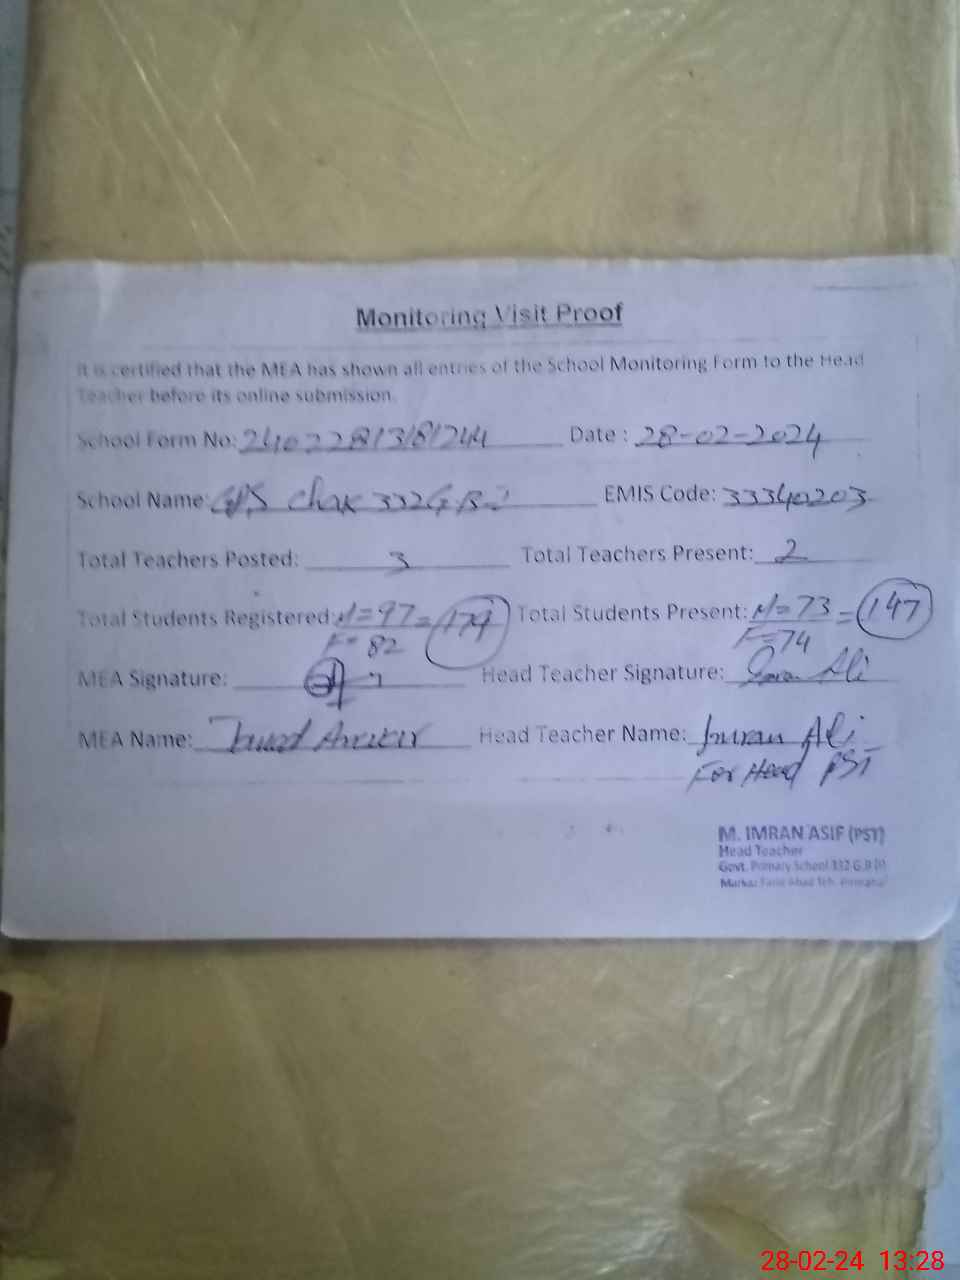 Monitoring Visit Proof
It is certified that the MEA has shown all entries of the School Monitoring Form to the Head
Teacher before its online submission.
School Form No: Date : 28-02-2024
School Name: GPS Chak 332 G.B EMIS Code: 33340203
Total Teachers Posted: 3 Total Teachers Present: 2
Total Students Registered: M=97 = 179 Total Students Present: M=73 = 147
F= 82 F=74
MEA Signature: Head Teacher Signature: Imran Ali
MEA Name: Head Teacher Name: Imran Ali
For Head PST
M. IMRAN ASIF (PST)
Head Teacher
Govt. Primary School 332 G.B
Markaz Teh.
28-02-24 13:28